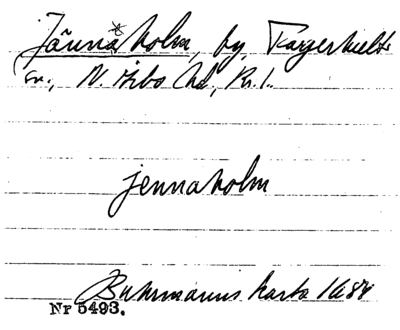 Jännaholm, by, Färgerhults
sn., N. Åsbo hd, Kr. l.
jennaholm
Buhrmanns karta 1684
Nr 5493.